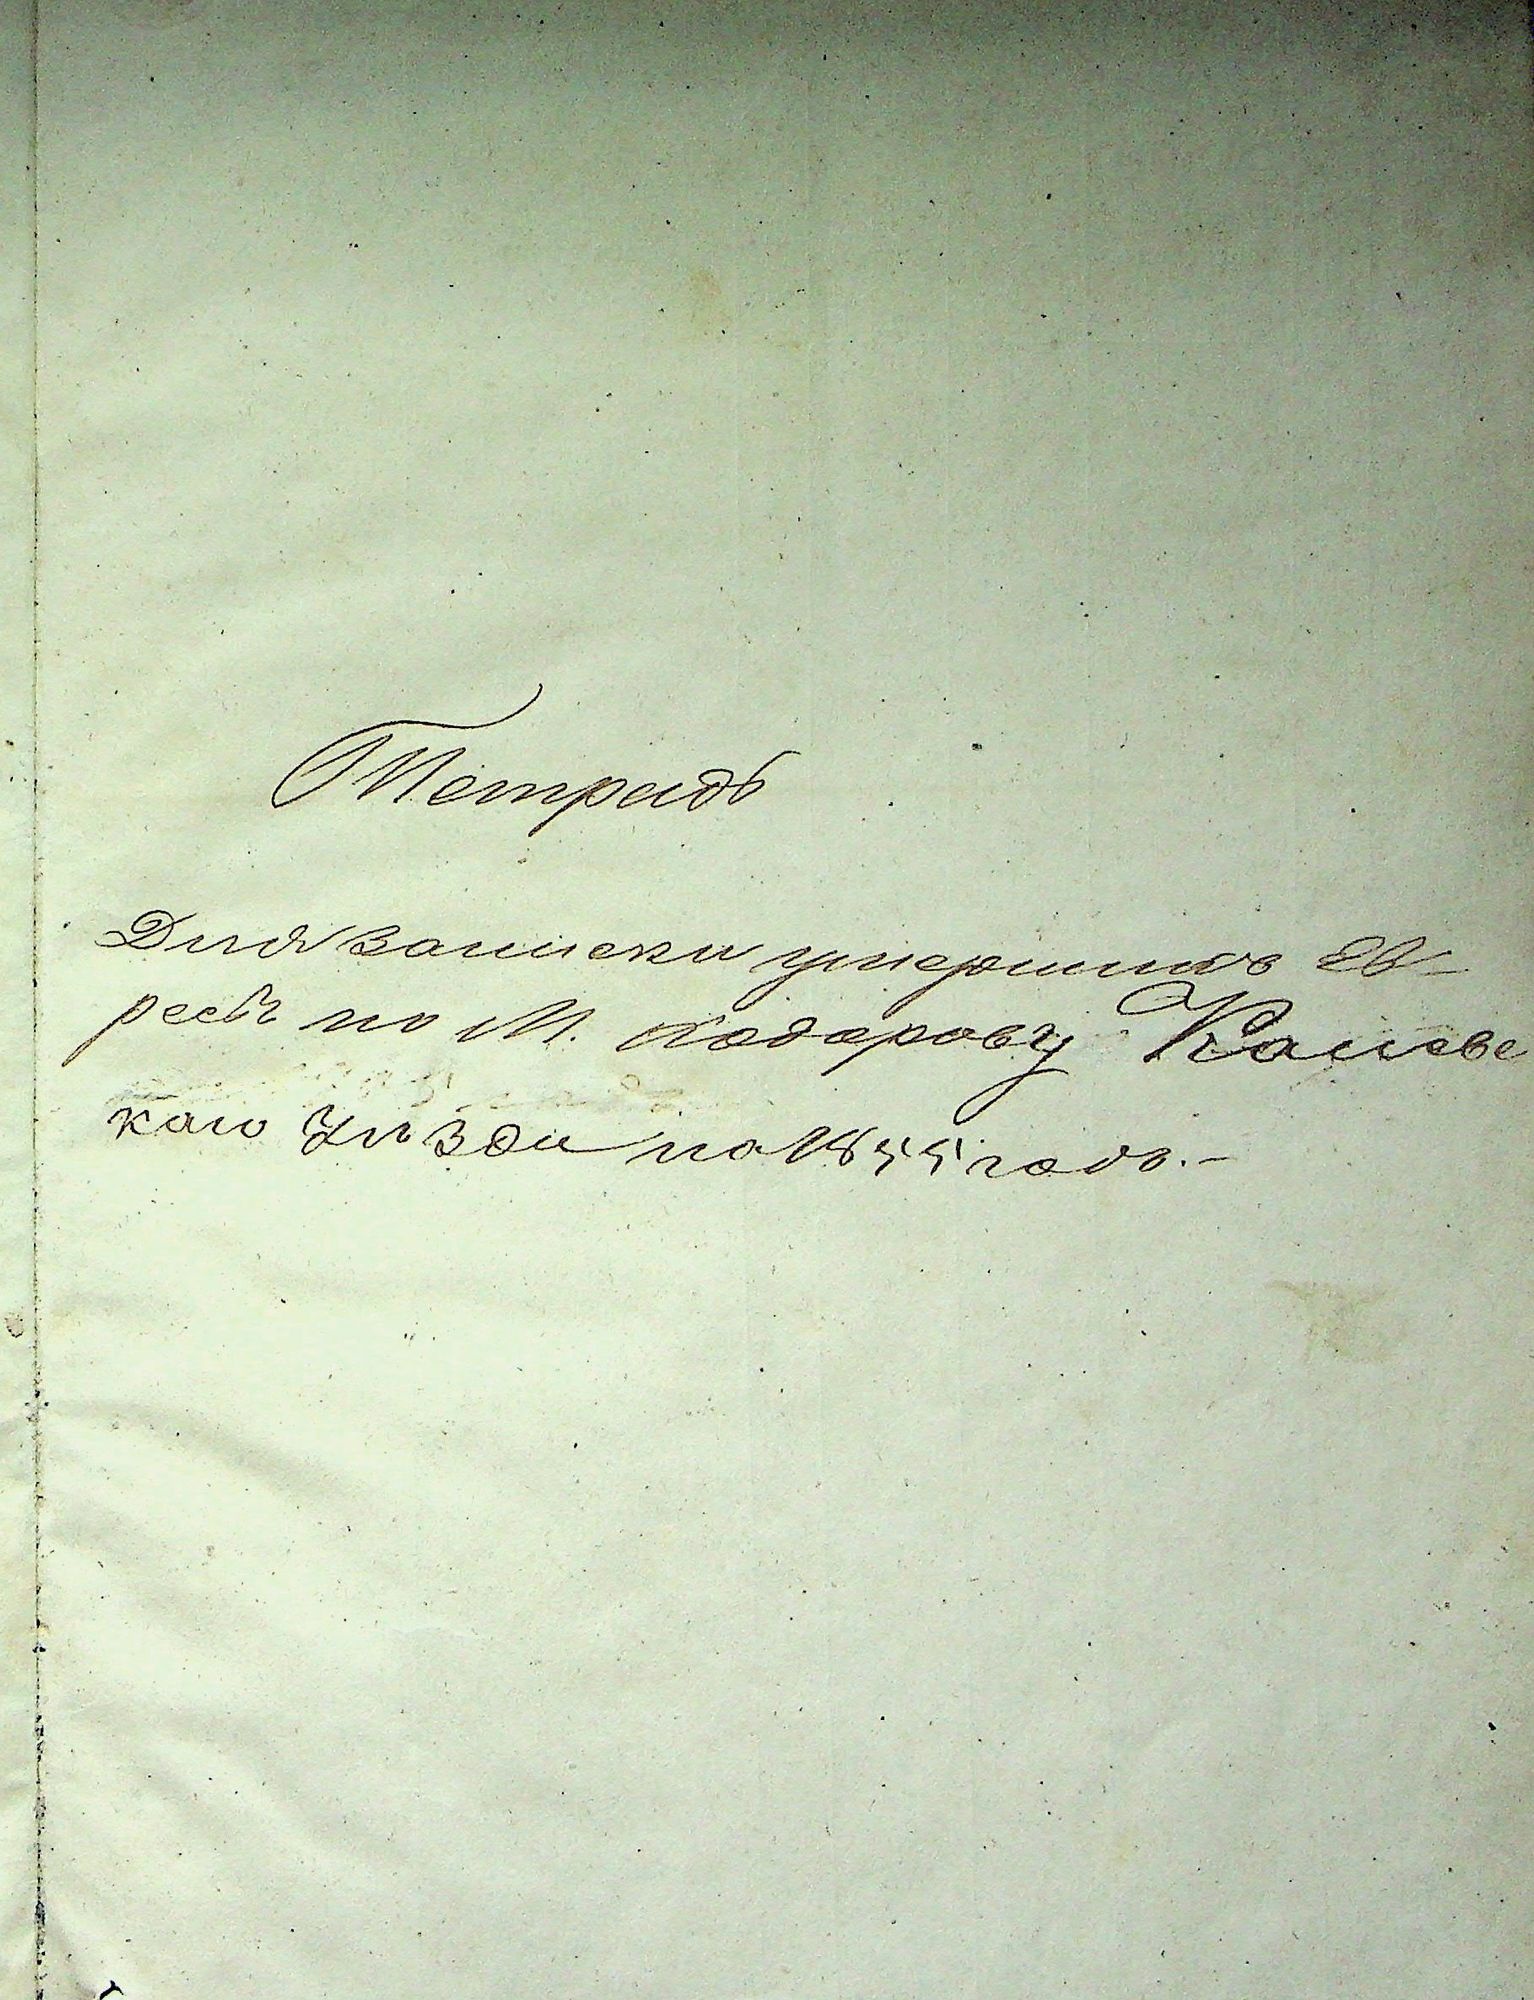 Тетрадь
Для записки умершихъ Ев-
реевъ по М. Ходорову Каневс
каго Уѣзда на 1855 годъ.-